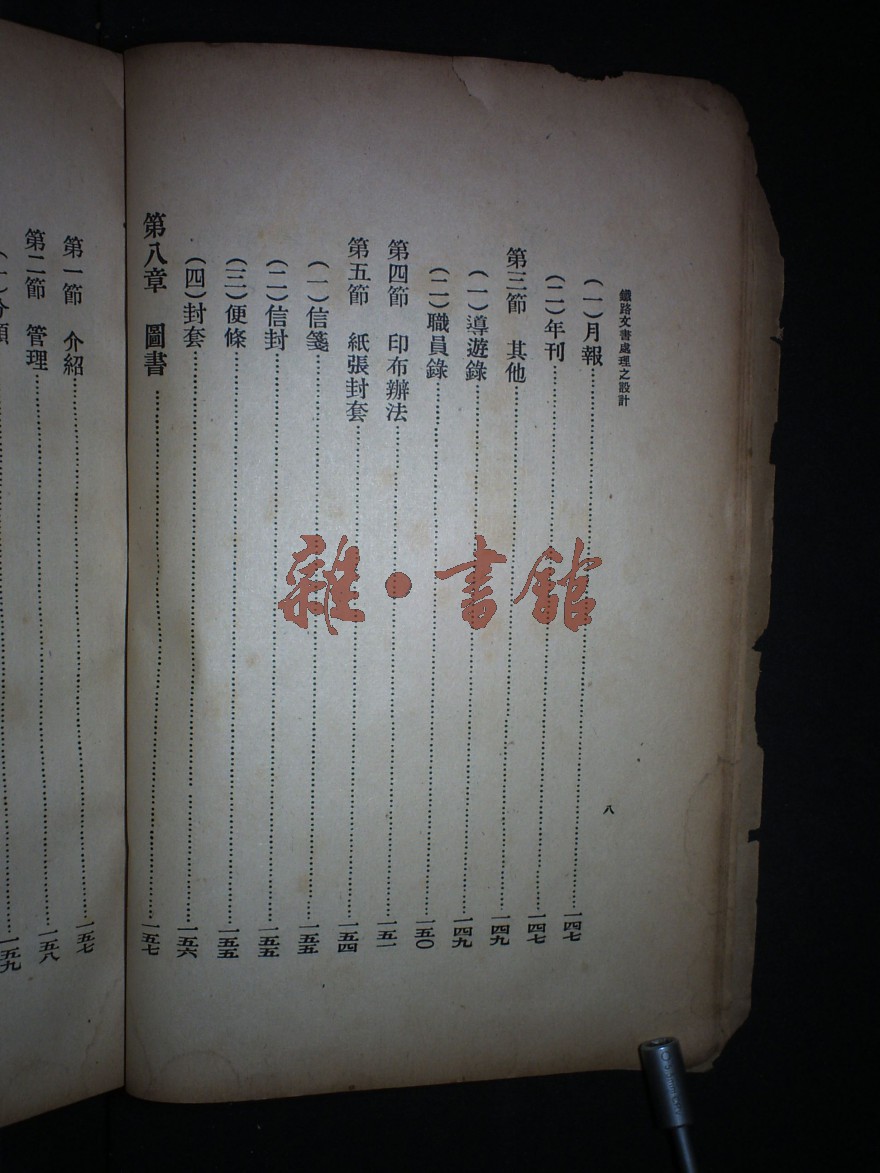 鐵路文書處理之設計
八
(一)月報…………一四七
(二)年刊…………一四七
第三節 其他…………一四九
(一)導遊錄…………一四九
(二)職員錄…………一五〇
第四節 印布辦法…………一五一
第五節 紙張封套…………一五四
(一)信箋…………一五五
(二)信封…………一五五
(三)便條…………一五五
(四)封套…………一五六
第八章 圖書…………一五七
第一節 介紹…………一五七
第二節 管理…………一五八
(一)分類…………一五九
雜•書館